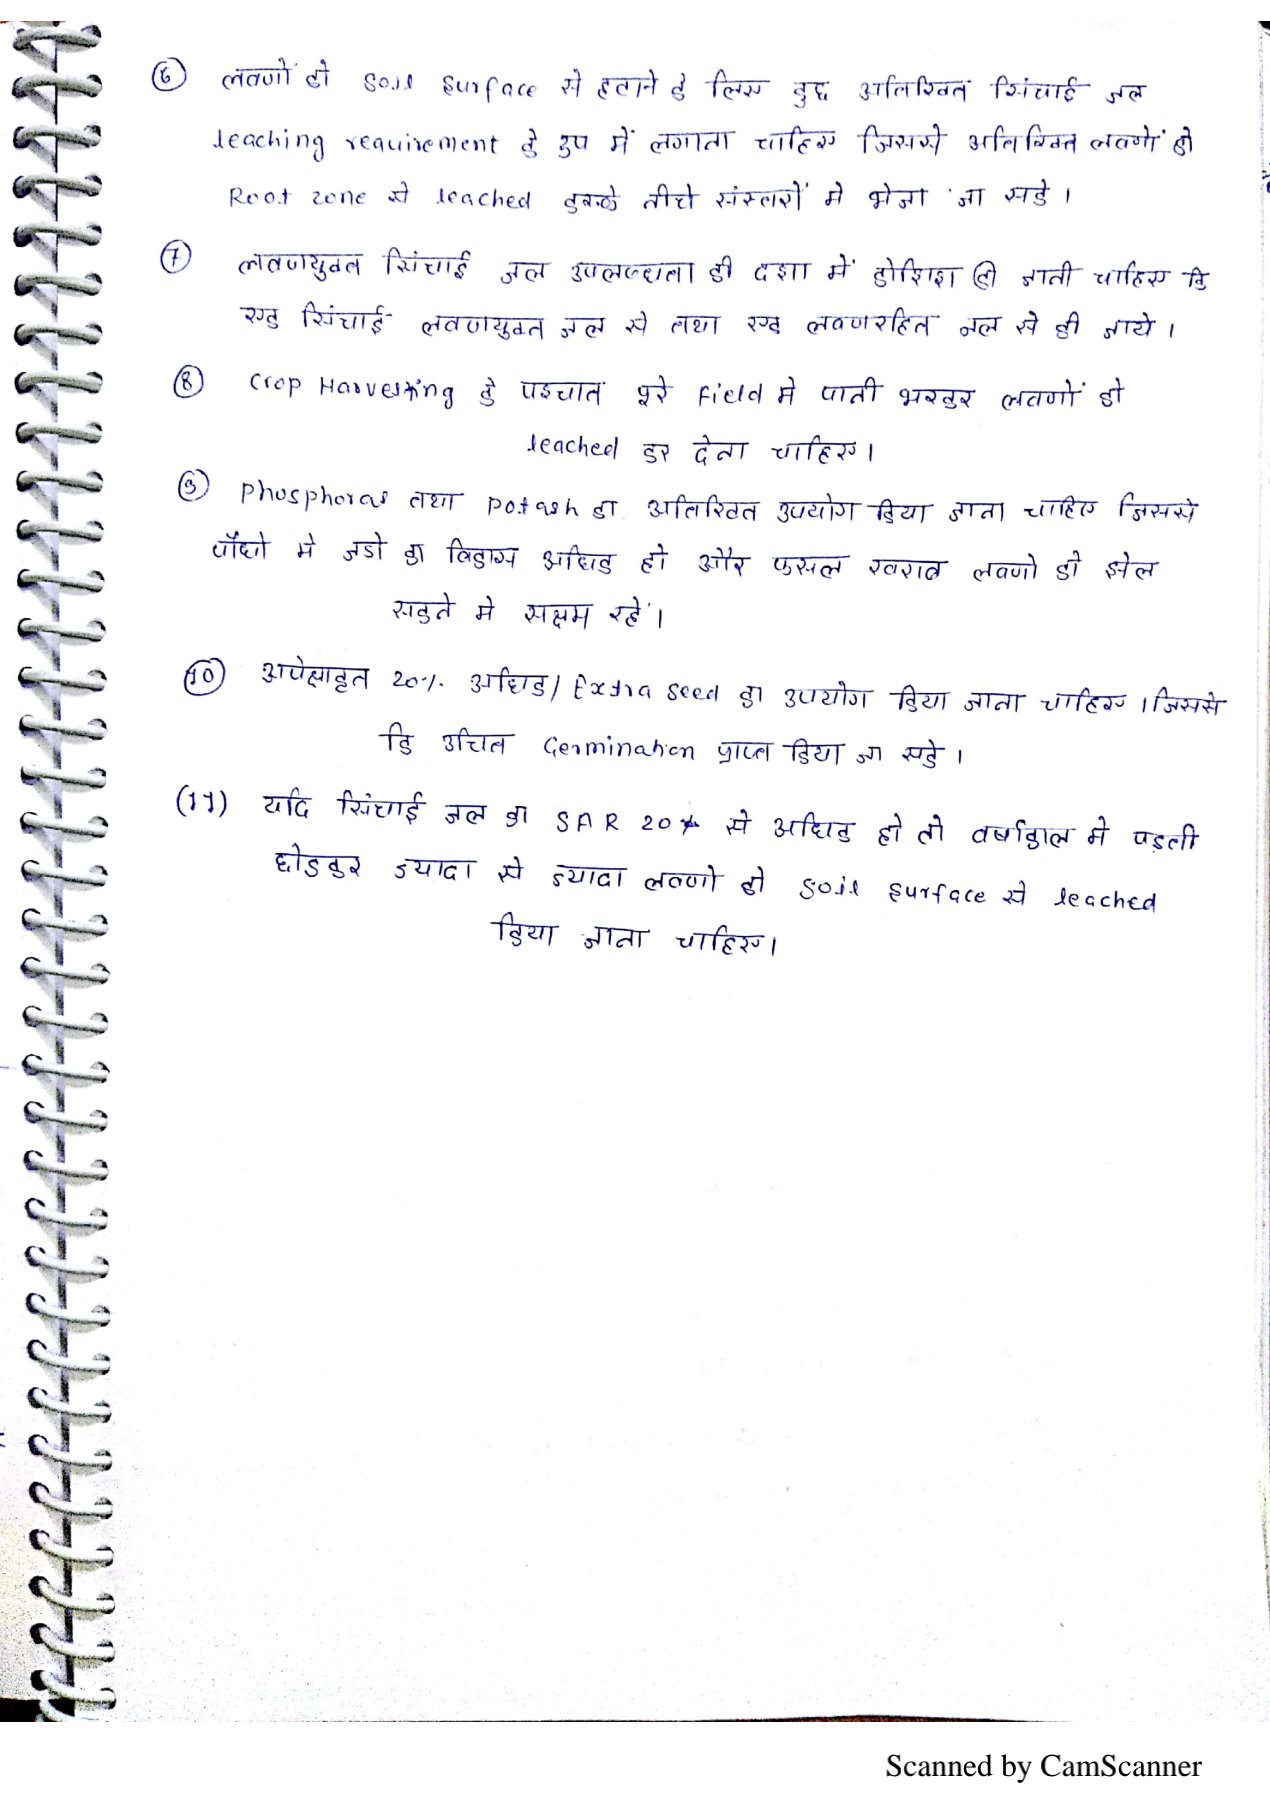 ⑥ लवणों को soil surface से हटाने के लिए कुछ अतिरिक्त सिंचाई जल
leaching requirement के रूप में लगाना चाहिए जिससे अतिरिक्त लवणों को
Root zone से leached करके नीचे संस्तरों में भेजा जा सके।
⑦ लवणयुक्त सिंचाई जल उपलब्धता की दशा में कोशिश की जानी चाहिए कि
एक सिंचाई लवणयुक्त जल से तथा एक लवणरहित जल से की जाये।
⑧ Crop Harvesting के पश्चात पूरे Field मे पानी भरकर लवणों को
leached कर देना चाहिए।
⑨ Phosphoras तथा Potash का अतिरिक्त उपयोग किया जाना चाहिए जिससे
पौधो मे जडो का विकास अधिक हो और फसल खराब लवणो को झेल
सकने मे सक्षम रहें।
⑩ अपेक्षाकृत 20% अधिक/Extra seed का उपयोग किया जाना चाहिए। जिससे
कि उचित Germination प्राप्त किया जा सके।
(11) यदि सिंचाई जल का SAR 20 से अधिक हो तो वर्षाकाल मे पड़ती
छोडकर ज्यादा से ज्यादा लवणो को soil surface से leached
किया जाना चाहिए।
Scanned by CamScanner